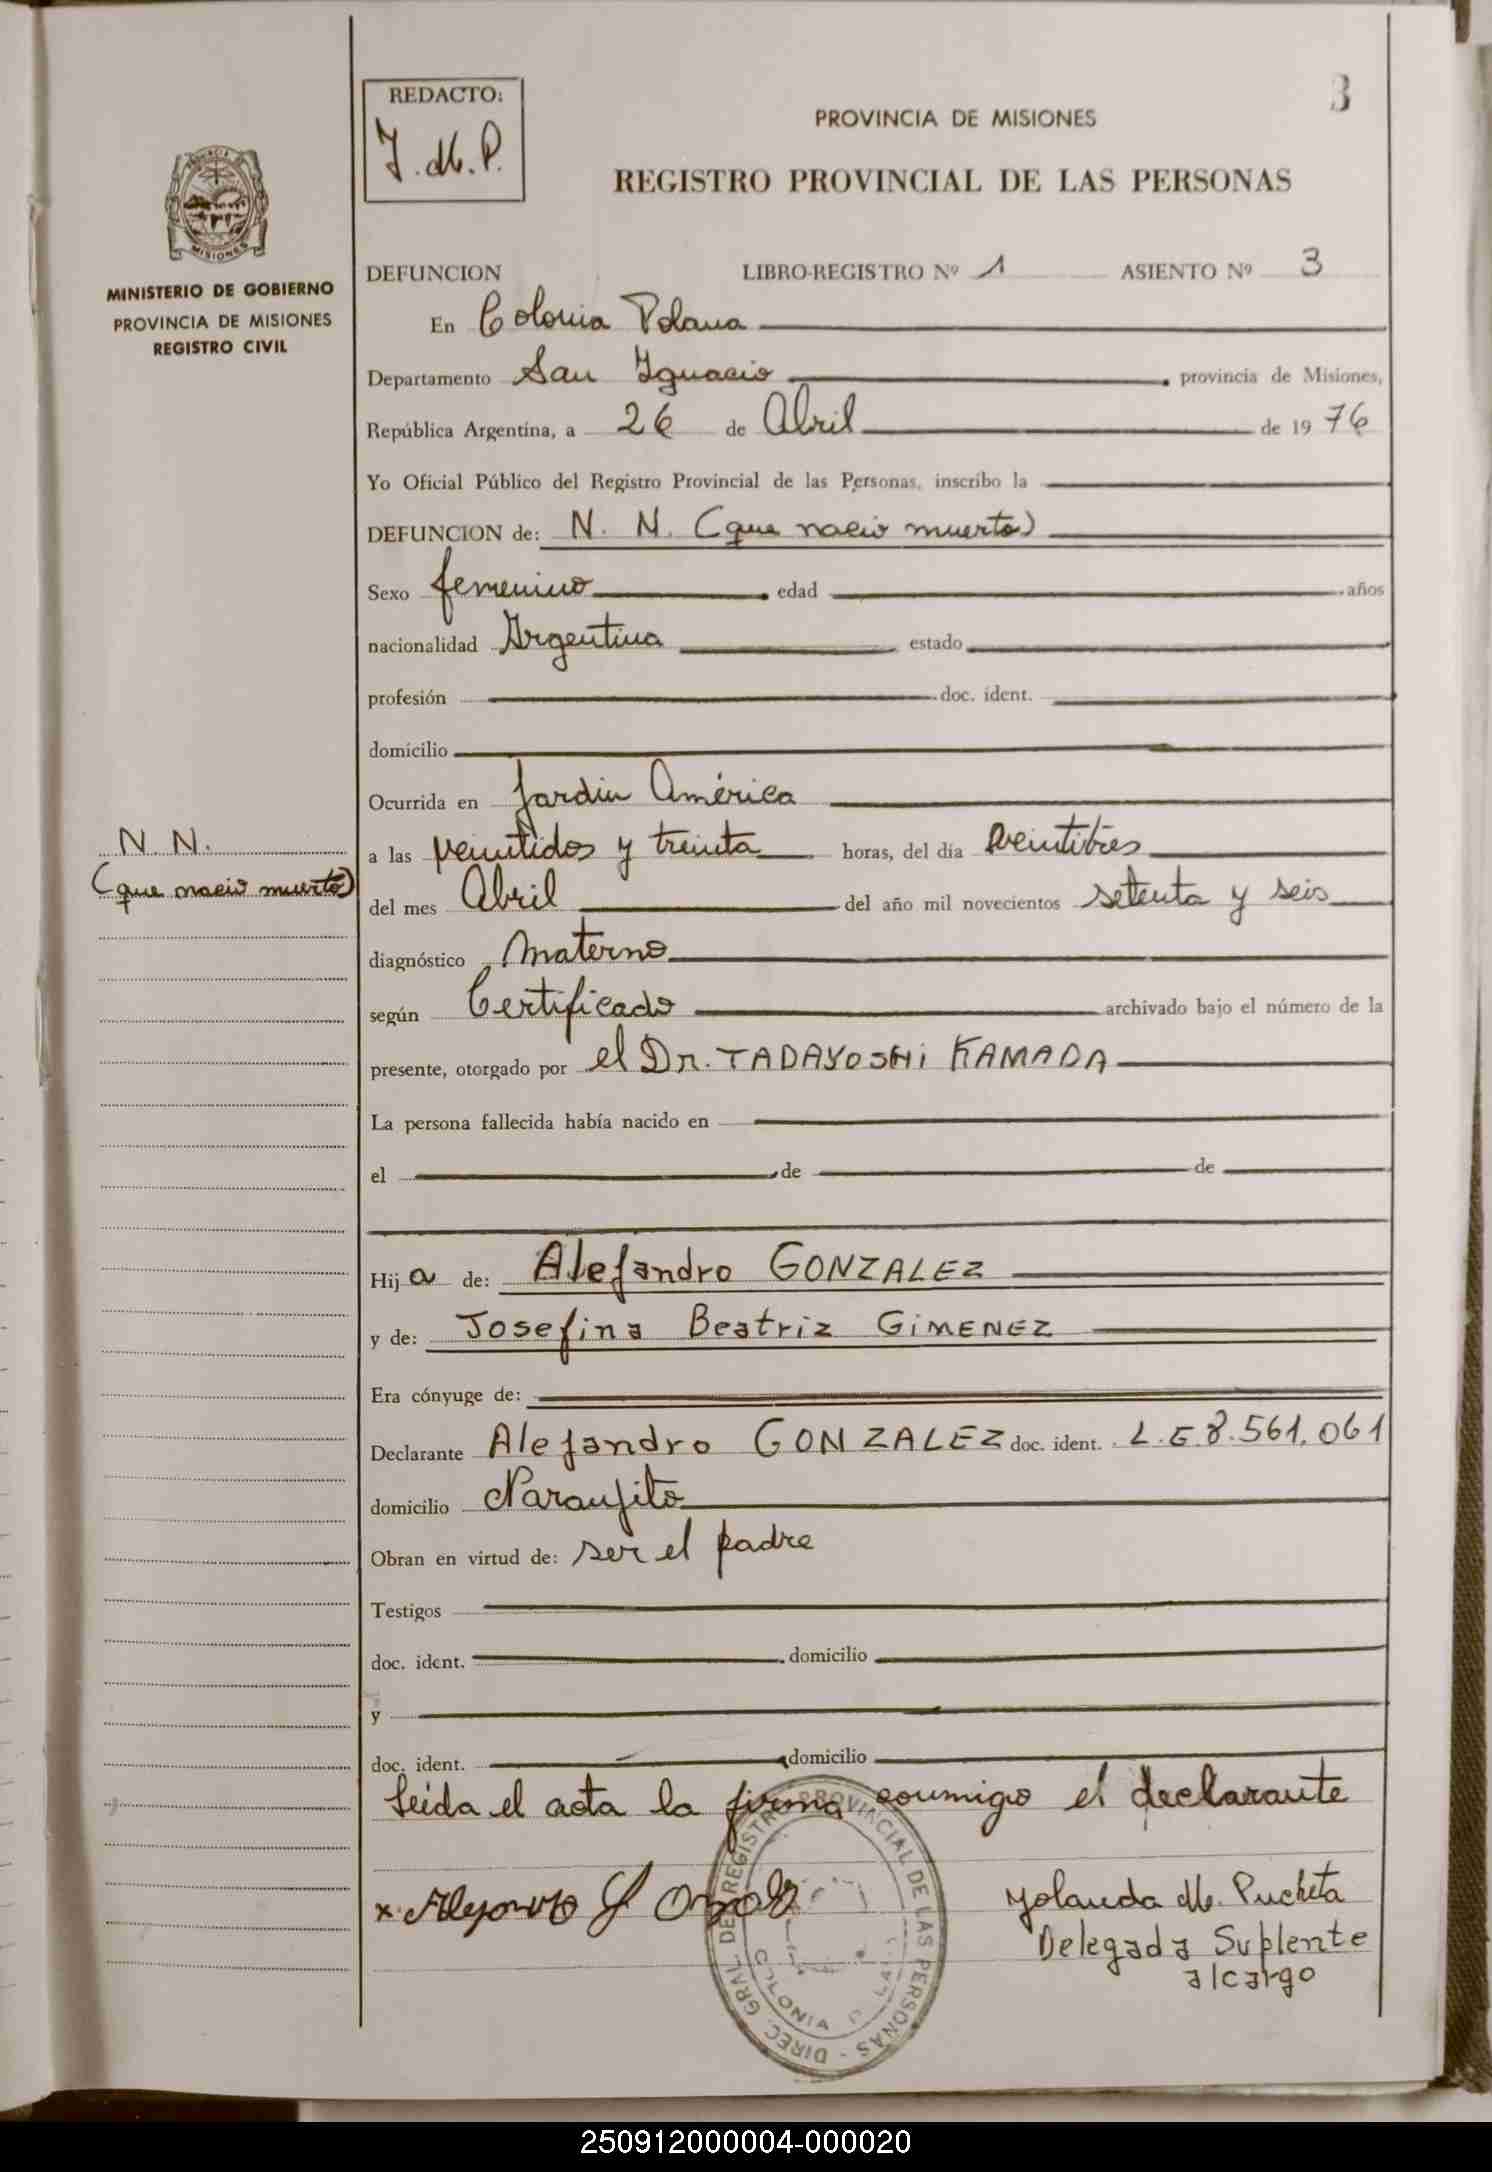 3
REDACTO:
Y. M. P.
PROVINCIA DE MISIONES
REGISTRO PROVINCIAL DE LAS PERSONAS
MISIONES
MINISTERIO DE GOBIERNO
PROVINCIA DE MISIONES
REGISTRO CIVIL
DEFUNCION LIBRO-REGISTRO Nº 1 ASIENTO Nº 3
En Colonia Polana
Departamento San Ignacio provincia de Misiones,
República Argentina, a 26 de Abril de 1976
Yo Oficial Público del Registro Provincial de las Personas, inscribo la
DEFUNCION de: N. N. (que nacio muerto)
Sexo femenino edad años
nacionalidad Argentina estado
profesión doc. ident.
domicilio
Ocurrida en Jardin América
N. N.
(que nacio muerto)
a las veintidos y treinta horas, del día veintitres
del mes Abril del año mil novecientos setenta y seis
diagnóstico Materno
según Certificado archivado bajo el número de la
presente, otorgado por el Dr. TADAYOSHi KAMADA
La persona fallecida había nacido en
el de de
Hija de: Alejandro GONZALEZ
y de: Josefina Beatriz GiMENEZ
Era cónyuge de:
Declarante Alejandro GONZALEZ doc. ident. L.E 8.561.061
domicilio Naranjito
Obran en virtud de: ser el padre
Testigos
doc. ident. domicilio
y
doc. ident. domicilio
Leida el acta la firma conmigo el declarante
DIREC. GRAL. DE REGISTRO PROVINCIAL DE LAS PERSONAS -
COLONIA P LA
Yolanda M. Pucheta
Delegada Suplente
alcargo
250912000004-000020